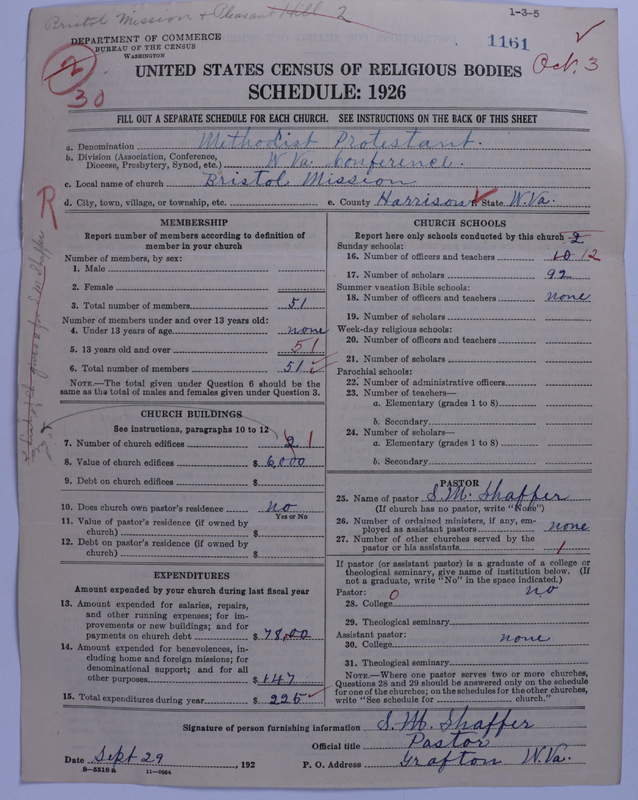 Bristol Mission & Pleasant Hill 2
1-3-5
DEPARTMENT OF COMMERCE
BUREAU OF THE CENSUS
WASHINGTON
1161
Oct. 3
2
30
UNITED STATES CENSUS OF RELIGIOUS BODIES
SCHEDULE: 1926
FILL OUT A SEPARATE SCHEDULE FOR EACH CHURCH. SEE INSTRUCTIONS ON THE BACK OF THIS SHEET
a. Denomination Methodist Protestant.
b. Division (Association, Conference,
Diocese, Presbytery, Synod, etc.) W. Va. Conference.
c. Local name of church Bristol Mission
d. City, town, village, or township, etc. e. County Harrison State W. Va.
R
MEMBERSHIP
Report number of members according to definition of
member in your church
Number of members, by sex:
1. Male
2. Female
3. Total number of members 51
Number of members under and over 13 years old:
4. Under 13 years of age none
5. 13 years old and over 51
6. Total number of members 51
NOTE.—The total given under Question 6 should be the
same as the total of males and females given under Question 3.
CHURCH BUILDINGS
See instructions, paragraphs 10 to 12
7. Number of church edifices 2 1
8. Value of church edifices $ 6,000
9. Debt on church edifices $
10. Does church own pastor's residence No
Yes or No
11. Value of pastor's residence (if owned by
church) $
12. Debt on pastor's residence (if owned by
church) $
EXPENDITURES
Amount expended by your church during last fiscal year
13. Amount expended for salaries, repairs,
and other running expenses; for im-
provements or new buildings; and for
payments on church debt $ 78,00
14. Amount expended for benevolences, in-
cluding home and foreign missions; for
denominational support; and for all
other purposes $ 147
15. Total expenditures during year $ 225
CHURCH SCHOOLS
Report here only schools conducted by this church 2
Sunday schools:
16. Number of officers and teachers 10 12
17. Number of scholars 92
Summer vacation Bible schools:
18. Number of officers and teachers none
19. Number of scholars
Week-day religious schools:
20. Number of officers and teachers
21. Number of scholars
Parochial schools:
22. Number of administrative officers
23. Number of teachers—
a. Elementary (grades 1 to 8)
b. Secondary
24. Number of scholars—
a. Elementary (grades 1 to 8)
b. Secondary
PASTOR
25. Name of pastor S. M. Shaffer
(If church has no pastor, write "None")
26. Number of ordained ministers, if any, em-
ployed as assistant pastors none
27. Number of other churches served by the
pastor or his assistants 1
If pastor (or assistant pastor) is a graduate of a college or
theological seminary, give name of institution below. (If
not a graduate, write "No" in the space indicated.)
Pastor: 0 no
28. College
29. Theological seminary
Assistant pastor: none
30. College
31. Theological seminary
NOTE.—Where one pastor serves two or more churches,
Questions 28 and 29 should be answered only on the schedule
for one of the churches; on the schedules for the other churches,
write "See schedule for church."
Signature of person furnishing information S. M. Shaffer
Official title Pastor
Date Sept 29, 192 P. O. Address Grafton W. Va.
8-5518 a 11-9064